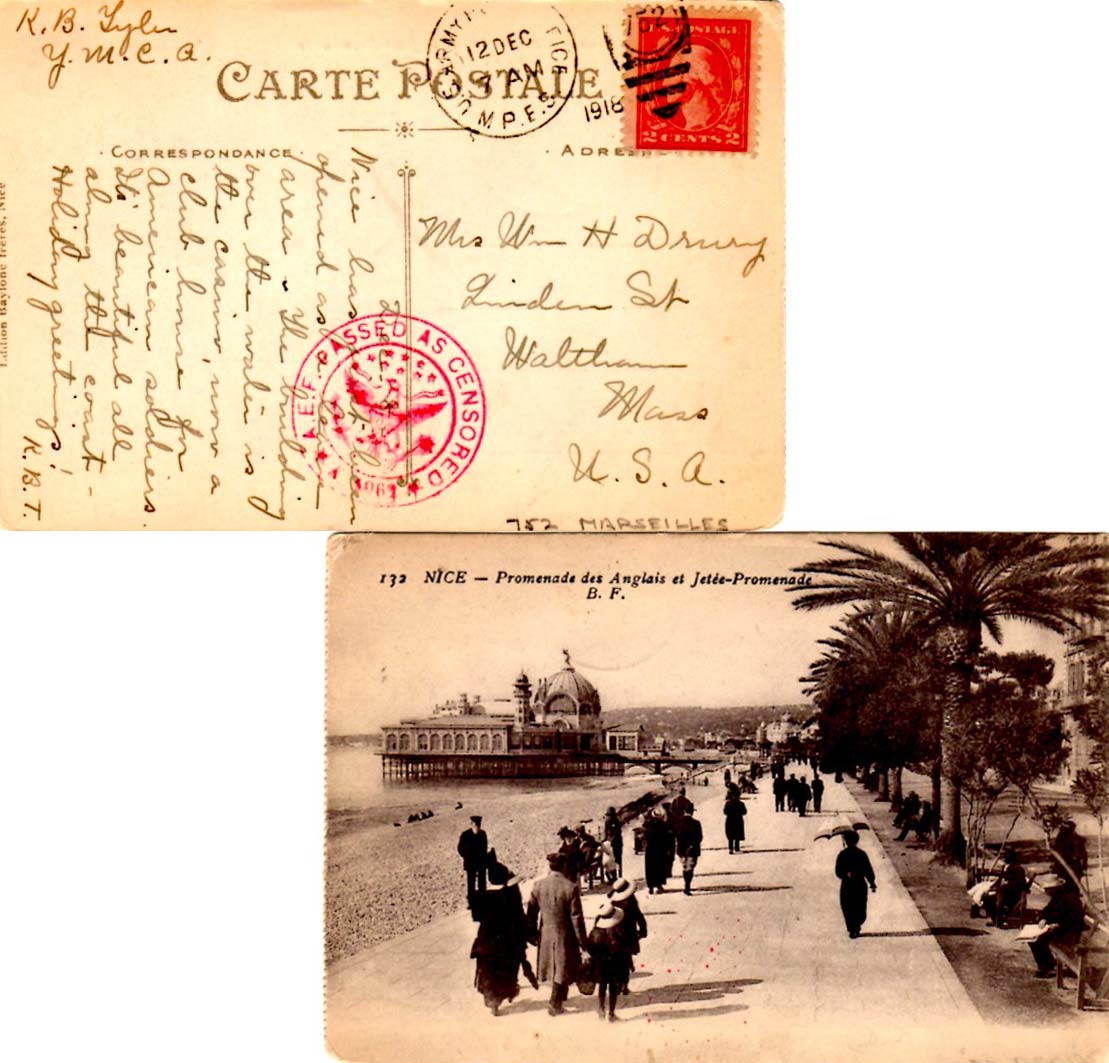 K. B. Tyler
Y. M. C. A.
CARTE POSTALE
12 DEC
7 AM
1918
M.P.E.S.
U.S. POSTAGE
2 CENTS 2
CORRESPONDANCE
Nice has just been
opened as a leave
area. The building
over the water is
the casino now a
club house for
American soldiers.
It's beautiful all
along the coast -
Holiday greetings!
K. B. T.
Mrs Wm H Drury
Linden St
Waltham
Mass
U. S. A.
A.E.F. PASSED AS CENSORED
752 MARSEILLES
Edition Baylone frères, Nice
132 NICE — Promenade des Anglais et Jetée-Promenade
B. F.